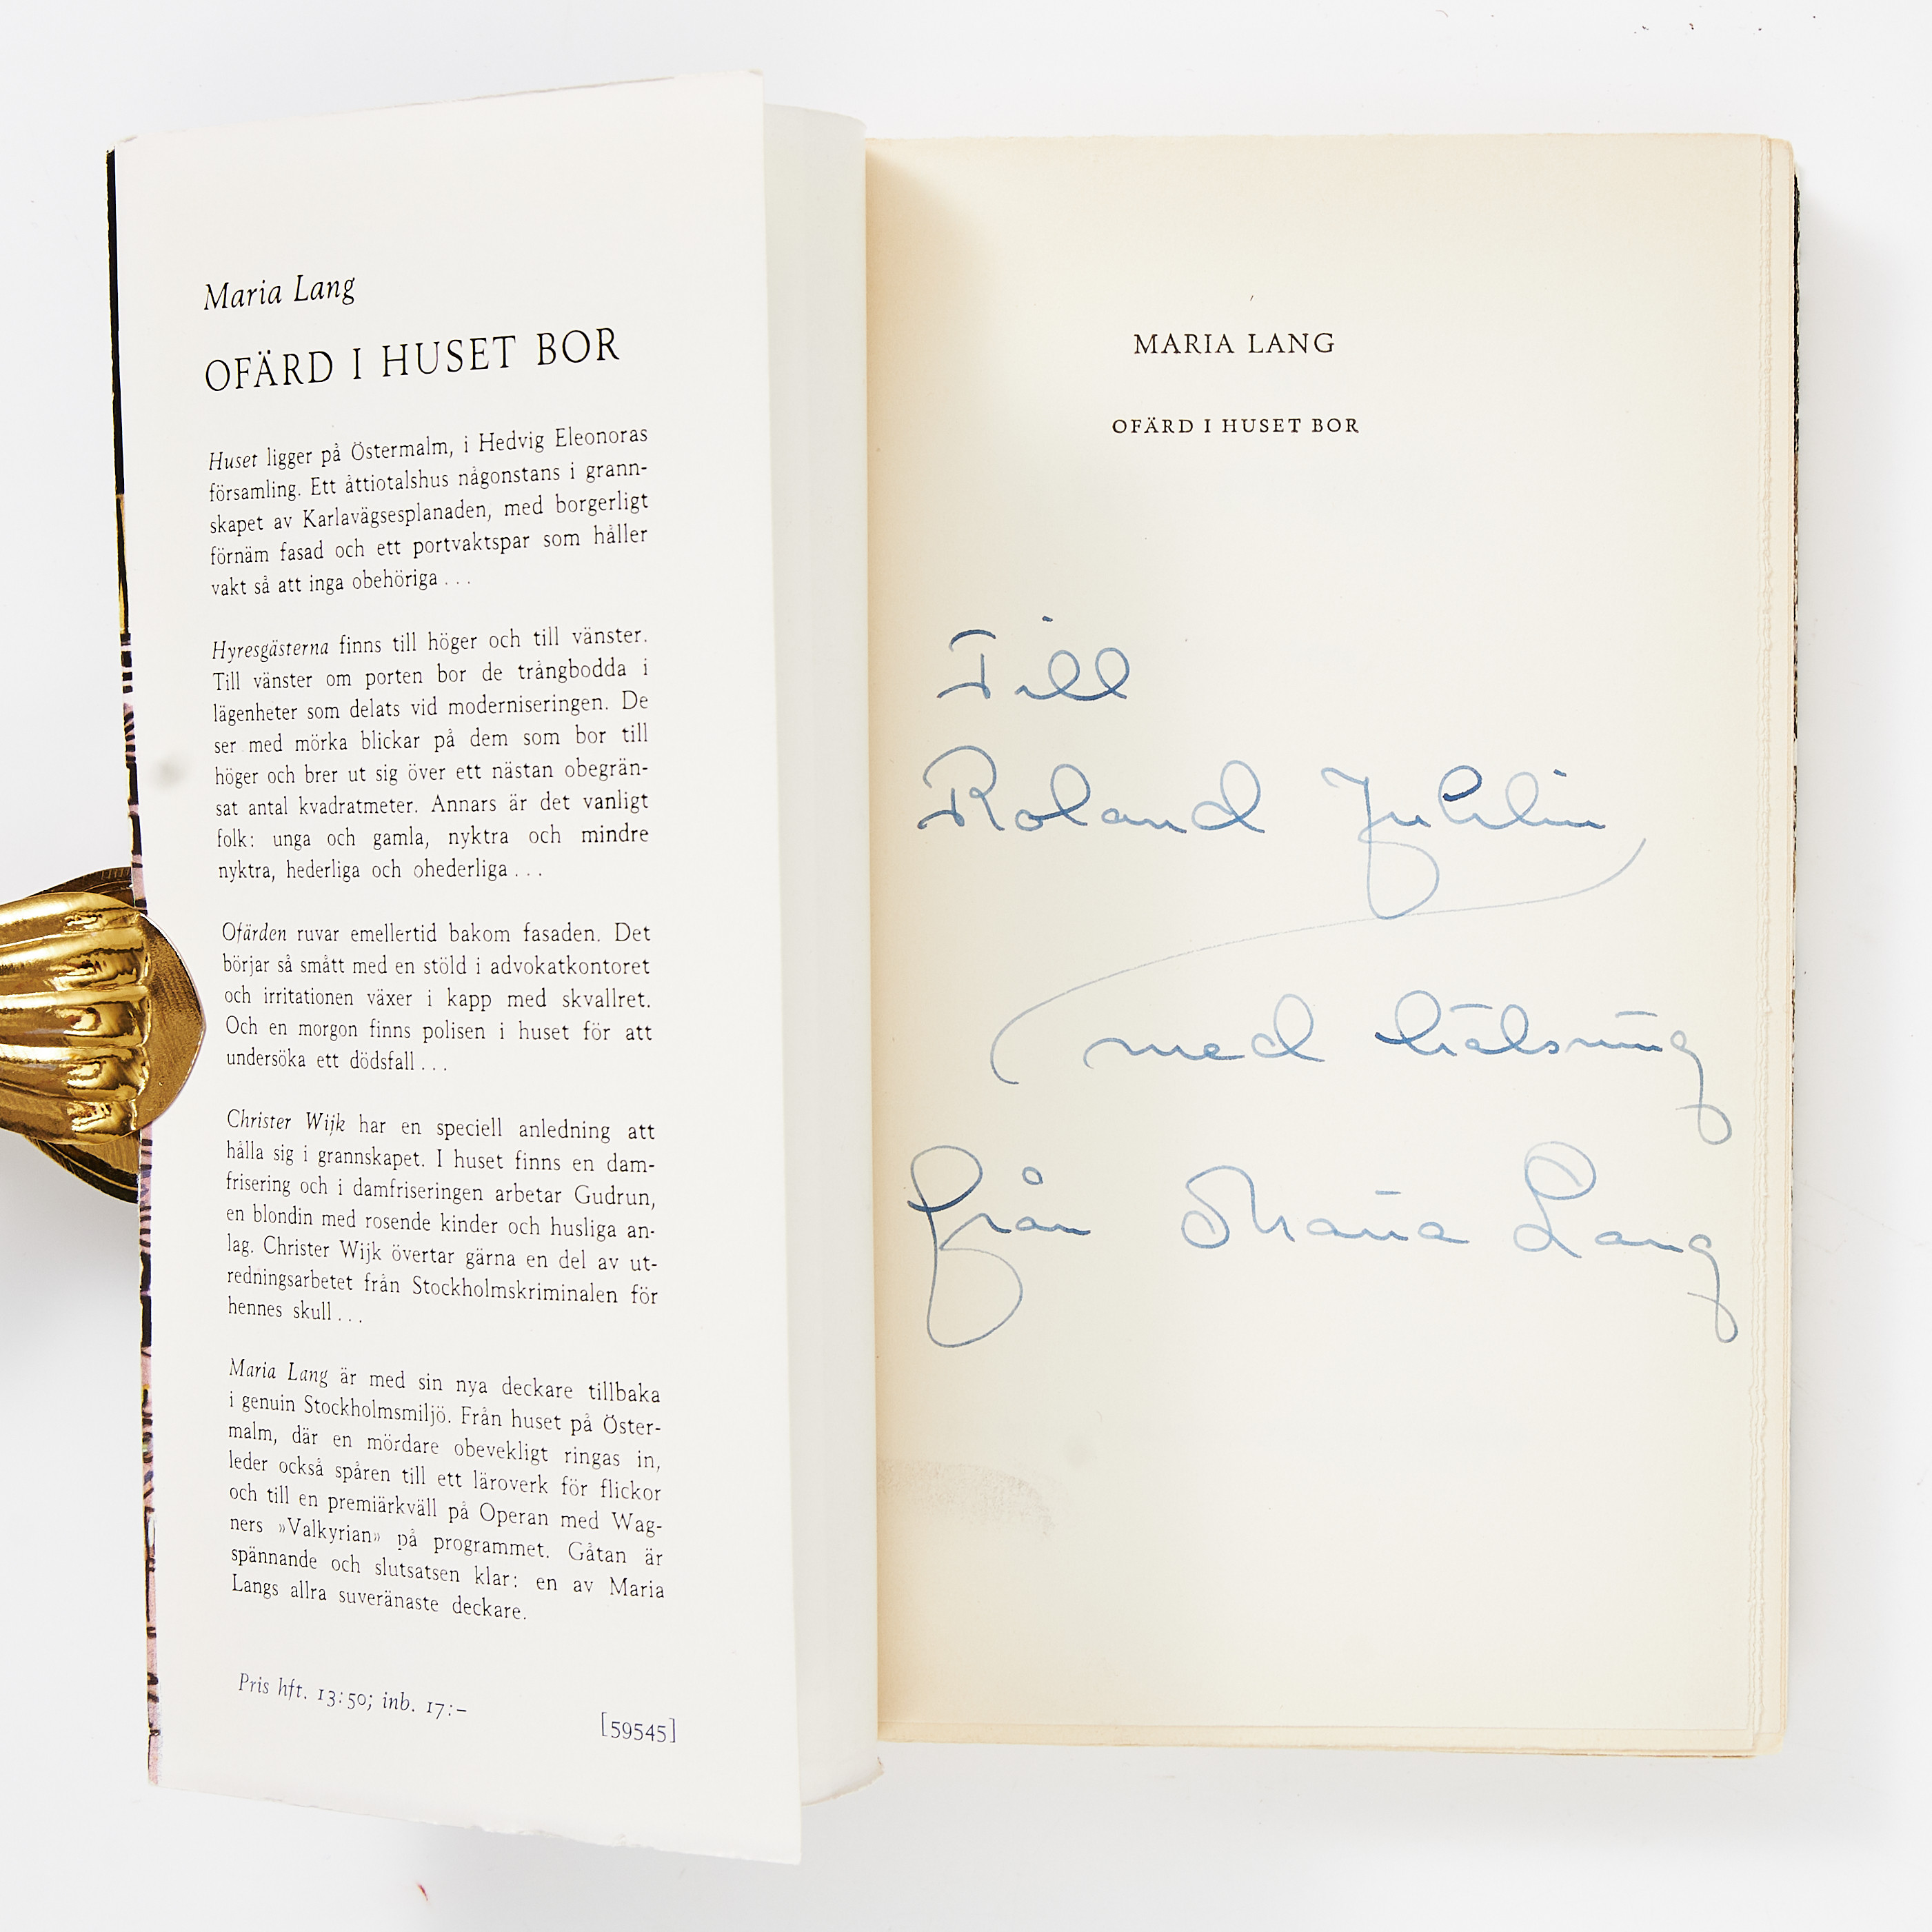 Maria Lang
OFÄRD I HUSET BOR
Huset ligger på Östermalm, i Hedvig Eleonoras
församling. Ett åttiotalshus någonstans i grann-
skapet av Karlavägsesplanaden, med borgerligt
förnäm fasad och ett portvaktspar som håller
vakt så att inga obehöriga . . .
Hyresgästerna finns till höger och till vänster.
Till vänster om porten bor de trångbodda i
lägenheter som delats vid moderniseringen. De
ser med mörka blickar på dem som bor till
höger och brer ut sig över ett nästan obegrän-
sat antal kvadratmeter. Annars är det vanligt
folk: unga och gamla, nyktra och mindre
nyktra, hederliga och ohederliga . . .
Ofärden ruvar emellertid bakom fasaden. Det
börjar så smått med en stöld i advokatkontoret
och irritationen växer i kapp med skvallret.
Och en morgon finns polisen i huset för att
undersöka ett dödsfall . . .
Christer Wijk har en speciell anledning att
hålla sig i grannskapet. I huset finns en dam-
frisering och i damfriseringen arbetar Gudrun,
en blondin med rosende kinder och husliga an-
lag. Christer Wijk övertar gärna en del av ut-
redningsarbetet från Stockholmskriminalen för
hennes skull . . .
Maria Lang är med sin nya deckare tillbaka
i genuin Stockholmsmiljö. Från huset på Öster-
malm, där en mördare obevekligt ringas in,
leder också spåren till ett läroverk för flickor
och till en premiärkväll på Operan med Wag-
ners »Valkyrian» på programmet. Gåtan är
spännande och slutsatsen klar: en av Maria
Langs allra suveränaste deckare.
Pris hft. 13:50; inb. 17:–
[59545]
MARIA LANG
OFÄRD I HUSET BOR
Till
Roland Juhlin
med hälsning
från Maria Lang